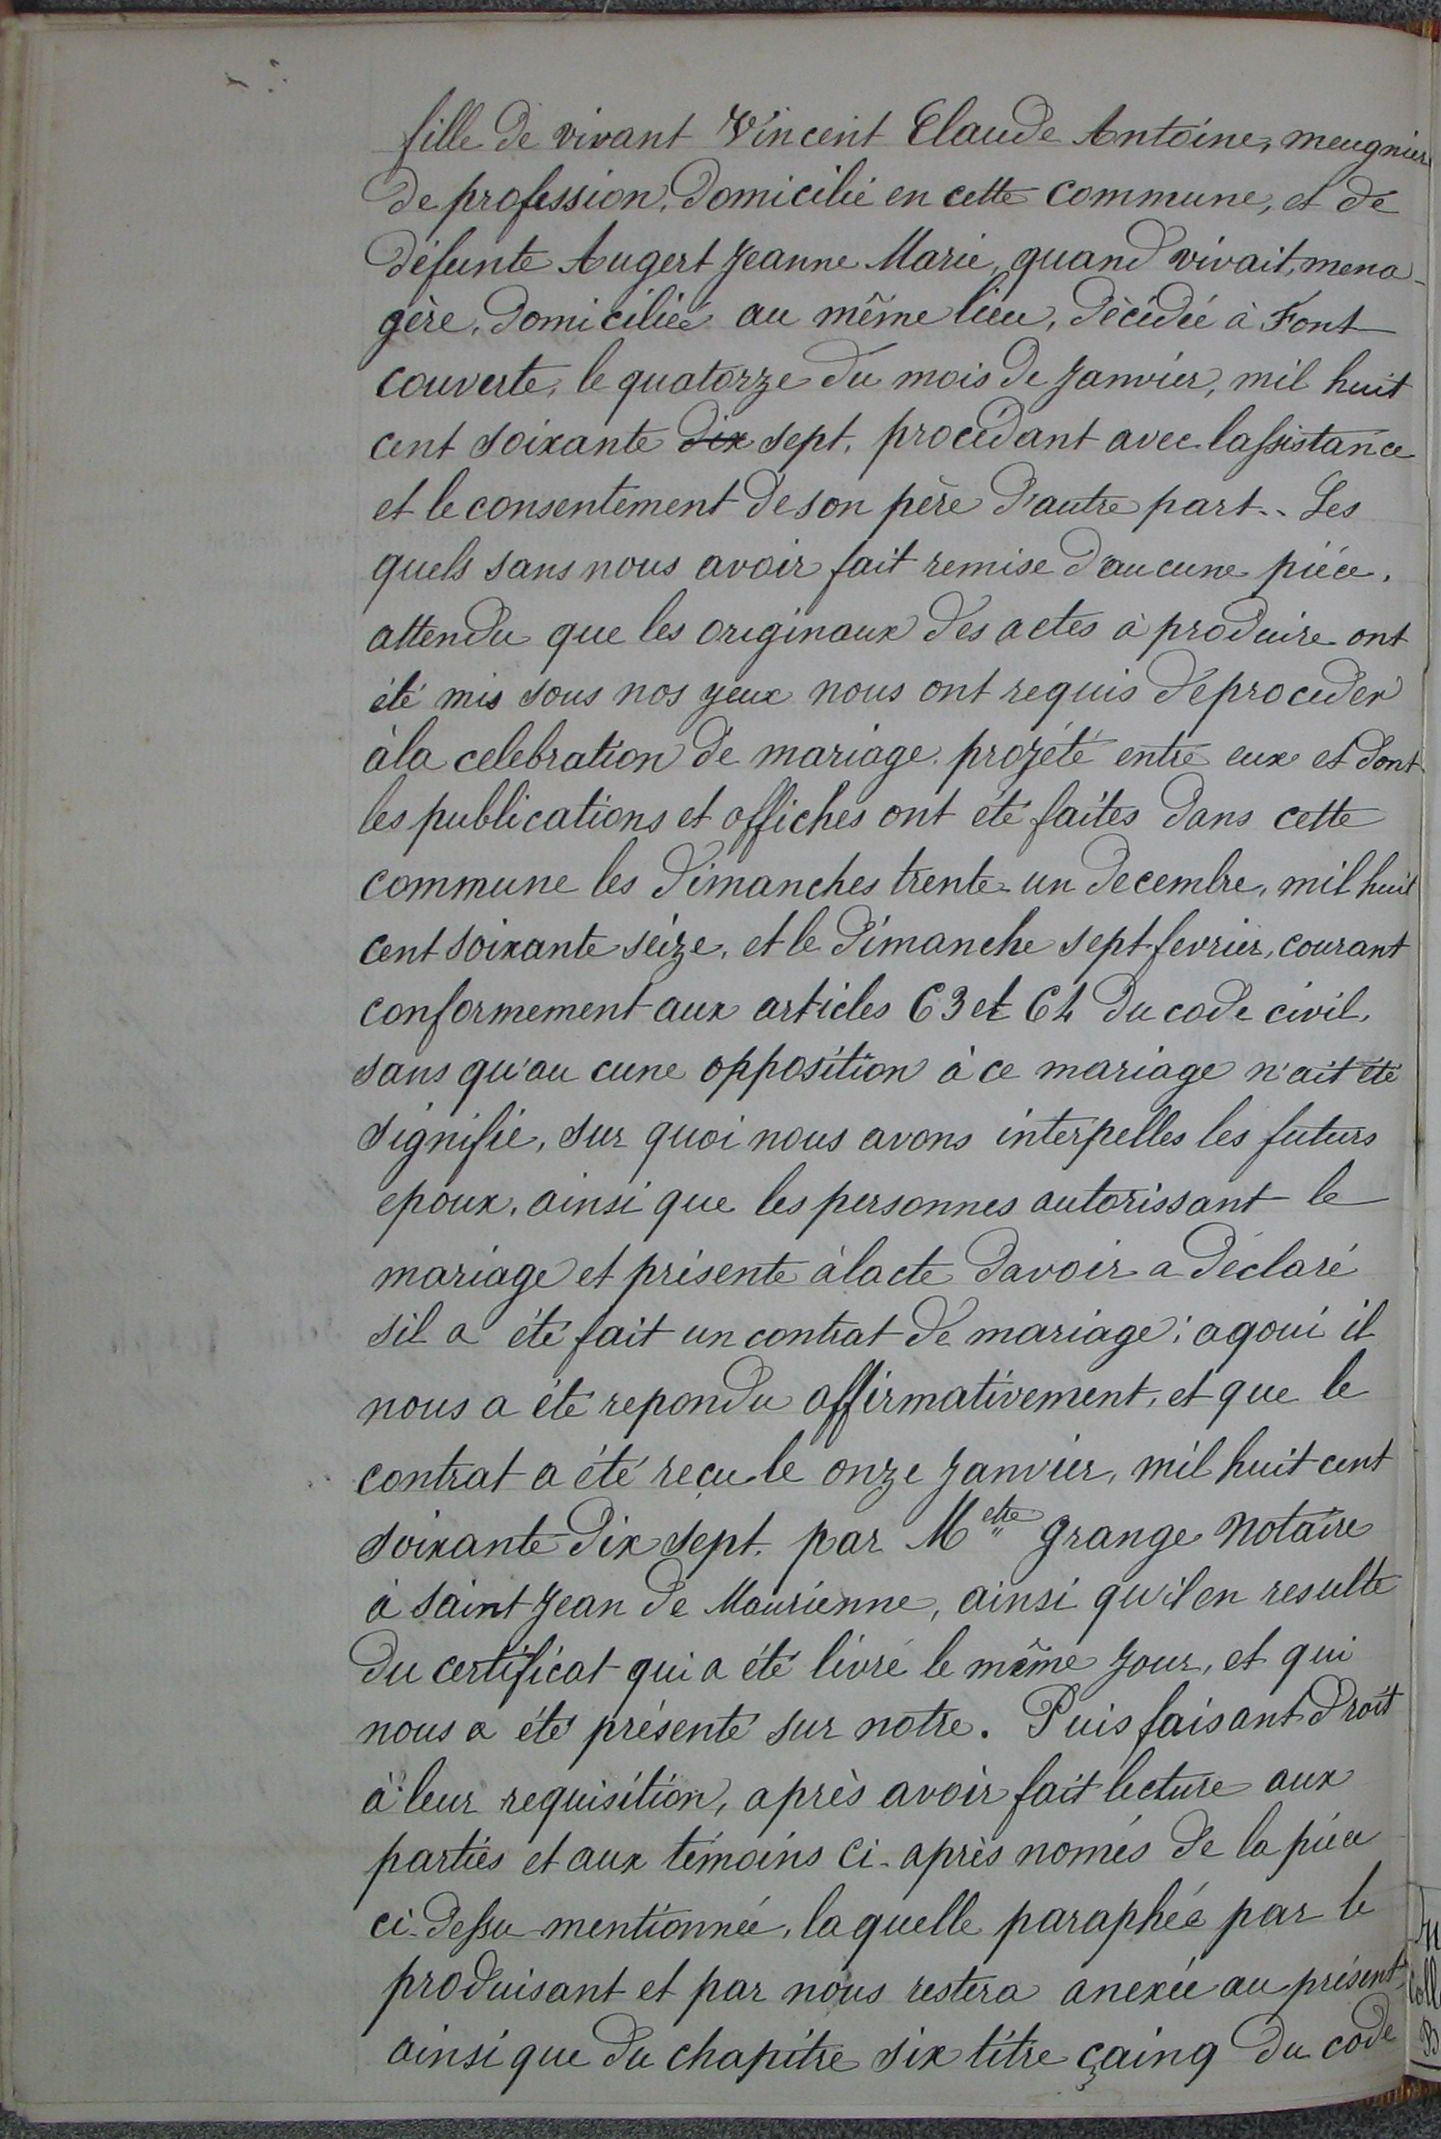 fille de vivant Vincent Claude Antoine, meugnier
de profession, domicilié en cette commune, et de
défunte Augert Jeanne Marie, quand vivait, mena-
gère, domiciliée au même lieu, décédée à Font
couverte, le quatorze du mois de Janvier, mil huit
cent soixante dix sept, procédant avec lassistance
et le consentement de son père d'autre part.. Les
quels sans nous avoir fait remise d'aucune piéce,
attendu que les originaux des actes à produire ont
été mis sous nos yeux nous ont requis de proceder
à la celebration de mariage projété entre eux et dont
les publications et affiches ont été faites dans cette
commune les dimanches trente-un decembre, mil huit
cent soixante seize, et le dimanche sept fevrier, courant
conformement aux articles 63 et 64 du code civil,
sans qu'au cune opposition à ce mariage n'ait été
signifié, sur quoi nous avons interpelles les futurs
epoux, ainsi que les personnes autorissant le
mariage et présente à lacte davoir a déclaré
sil a été fait un contrat de mariage; aqoui il
nous a été repondu affirmativement, et que le
contrat a été reçu le onze Janvier, mil huit cent
soixante dix sept. par Metre Grange Notaire
à saint Jean de Maurienne, ainsi qu'il en resulte
du certificat qui a été livré le même jour, et qui
nous a été présenté sur notre. Puis faisant droit
à leur requisition, après avoir fait lecture aux
parties et aux témoins ci-après només de la piéce
ci-dessu mentionnée, la quelle paraphée par le
produisant et par nous restera anexée au présent
ainsi que du chapitre six titre çainq du code